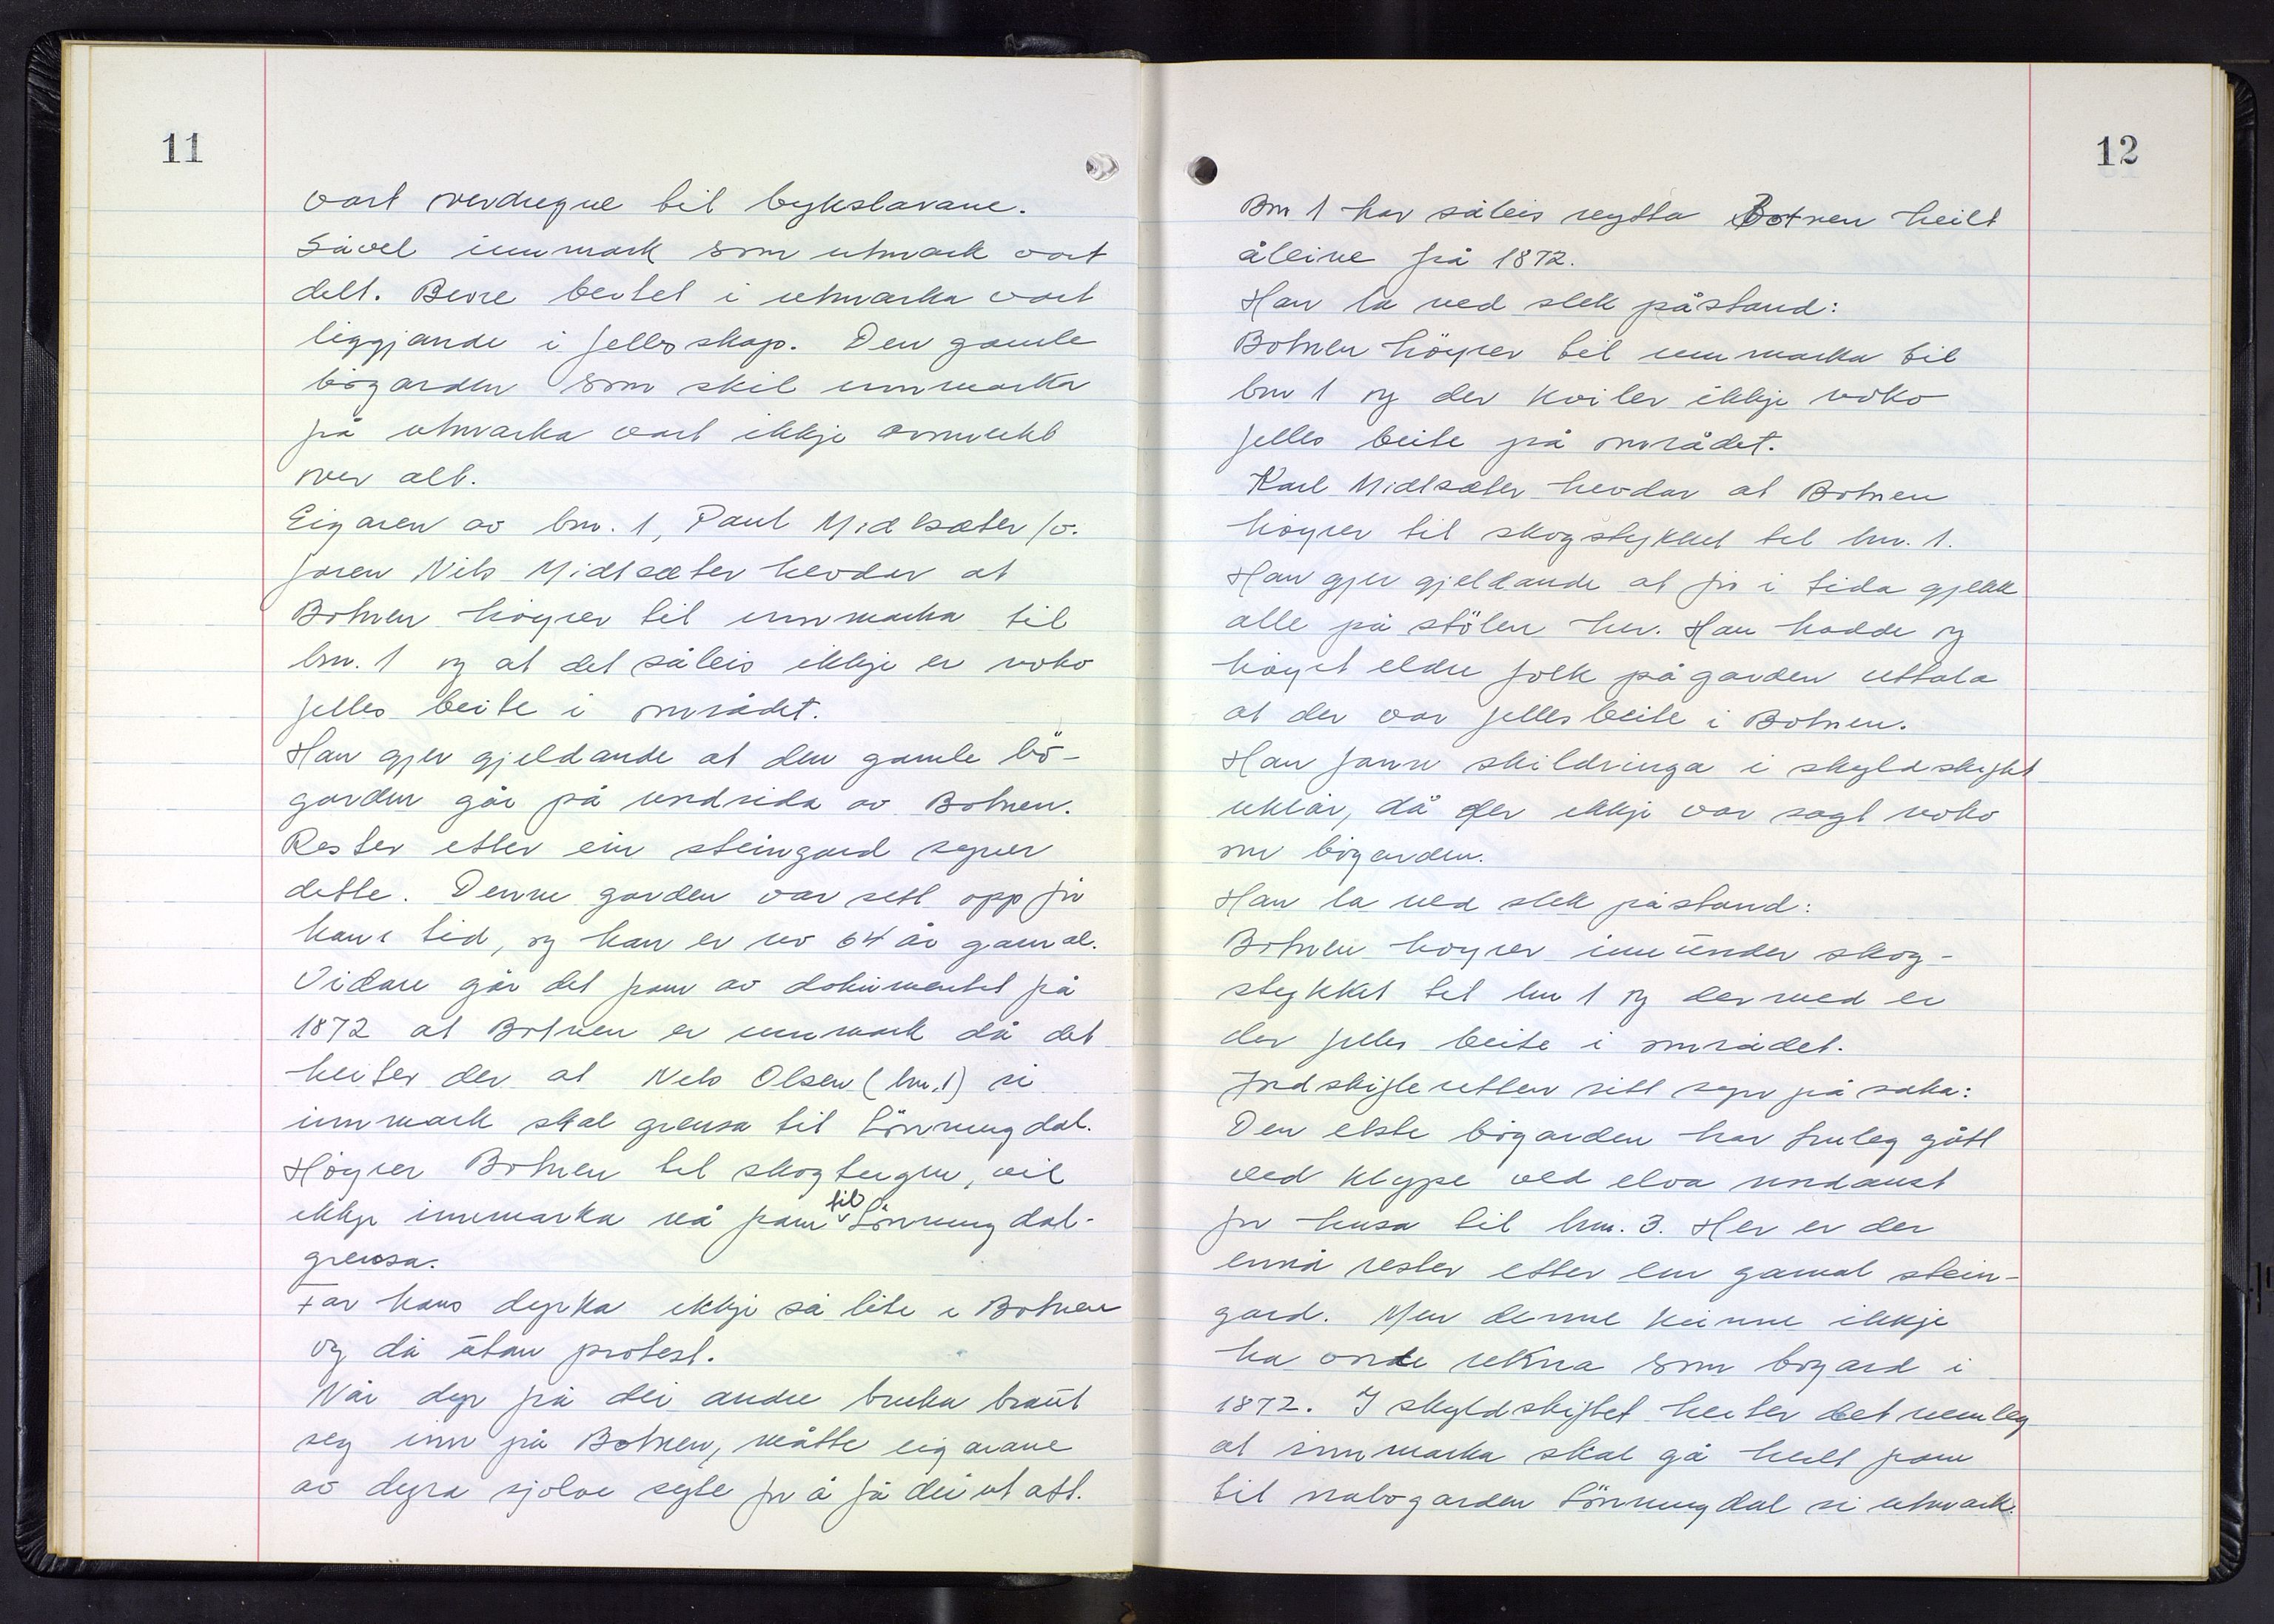 11
vart overdregne til bykslarane.
Såvel innmark som utmark vart
delt. Berre beitet i utmarka vart
liggjande i fellesskap. Den gamle
bögarden som skil innmarka
frå utmarka vart ikkje avmerkt
over alt.
Eigaren av bnr. 1, Paul Midtsæter v.
faren Nils Midtsæter hevdar at
Botnen höyrer til innmarka til
bnr. 1 og at det såleis ikkje er noko
felles beite i området.
Han gjer gjeldande at den gamle bö-
garden går på undsida av Botnen.
Rester etter ein steingard segner
dette. Denne garden var sett opp för
hans tid, og han er no 64 år gamal.
Vidare går det fram av dokumentet frå
1872 at Botnen er innmark då det
heiter der at Nels Olsen (bnr. 1) si
innmark skal grensa til Lönningdal.
Höyrer Botnen til skogteigen, vil
ikkje innmarka nå fram til Lönningdal-
grensa.
Far hans dyrka ikkje så lite i Botnen
og då utan protest.
Når dyr frå dei andre bruka braut
seg inn på Botnen, måtte eigarane
av dyra sjölve syte for å få dei ut att.
12
Bnr 1 har såleis nytta Botnen heilt
åleine frå 1872.
Han la ned slik påstand:
Botnen höyrer til innmarka til
bnr 1 og der kviler ikkje noko
felles beite på området.
Karl Midtsæter hevdar at Botnen
höyrer til skogstykket til bnr. 1.
Han gjer gjeldande at för i tida gjekk
alle på stölen her. Han hadde og
höyrt eldre folk på garden uttala
at der var fellesbeite i Botnen.
Han fann skildringa i skyldskiftet
uklår, då der ikkje var sagt noko
om bögarden.
Han la ned slik påstand:
Botnen höyrer inn under skog-
stykket til bnr 1 og dermed er
der felles beite i området.
Jordskifteretten sitt syn på saka:
Den elste bögarden har truleg gått
ved Klype ved elva nordaust
for husa til bnr. 3. Her er der
ennå rester etter ein gamal stein-
gard. Men denne kunne ikkje
ha vorte rekna som bögard i
1872. I skyldskiftet heiter det nemleg
at innmarka skal gå heilt fram
til nabogarden Lönningdal si utmark.